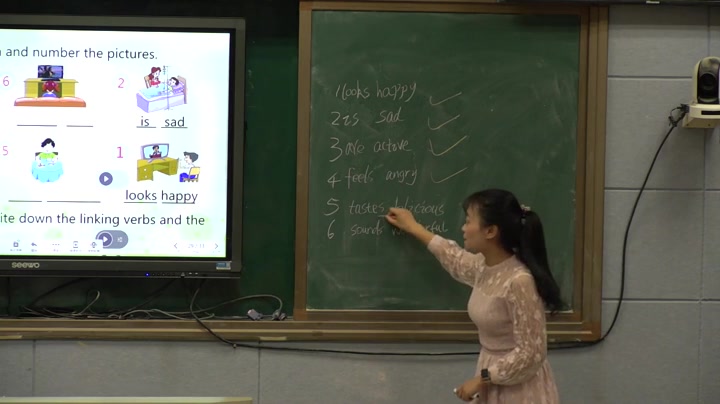 and number the pictures.
6
2
is sad
5
1
looks happy
ite down the linking verbs and the
seewo
1 looks happy
2 is sad
3 are active
4 feels angry
5 tastes delicious
6 sounds